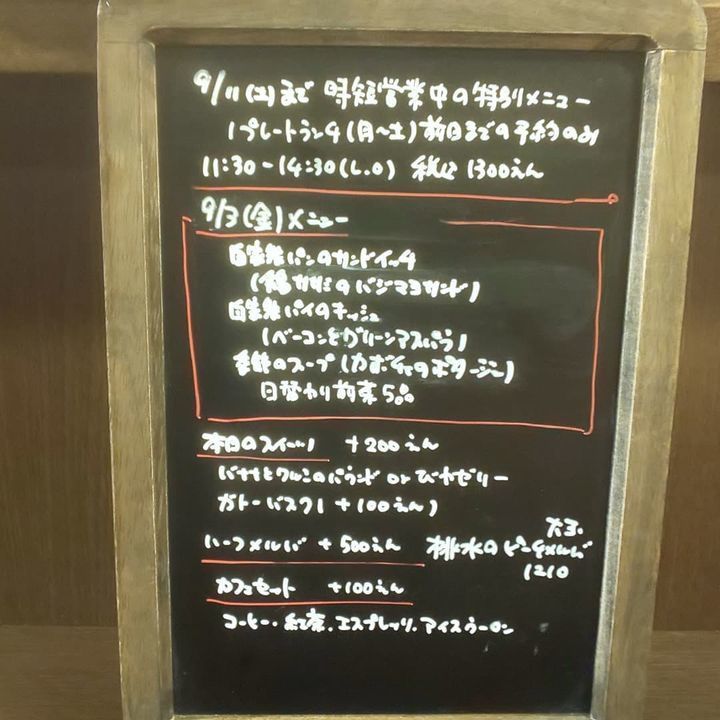 9/11(土)まで 時短営業中の特別メニュー
1プレートランチ(月〜土)前日までの予約のみ
11:30-14:30(L.O) 税込1300えん
9/3(金)メニュー
自家製パンのサンドイッチ
(鶏ササミのバジマヨサンド)
自家製パイのキッシュ
(ベーコンとグリーンアスパラ)
季節のスープ(カボチャのポタージュ)
日替わり前菜5品
本日のスイーツ +200えん
バナナとクルミのパウンド or びわゼリー
ガトーバスク(+100えん)
ハーフメルバ +500えん
桃水のピーチメルバ
1210
カフェセット +100えん
コーヒー・紅茶・エスプレッソ・アイスウーロン